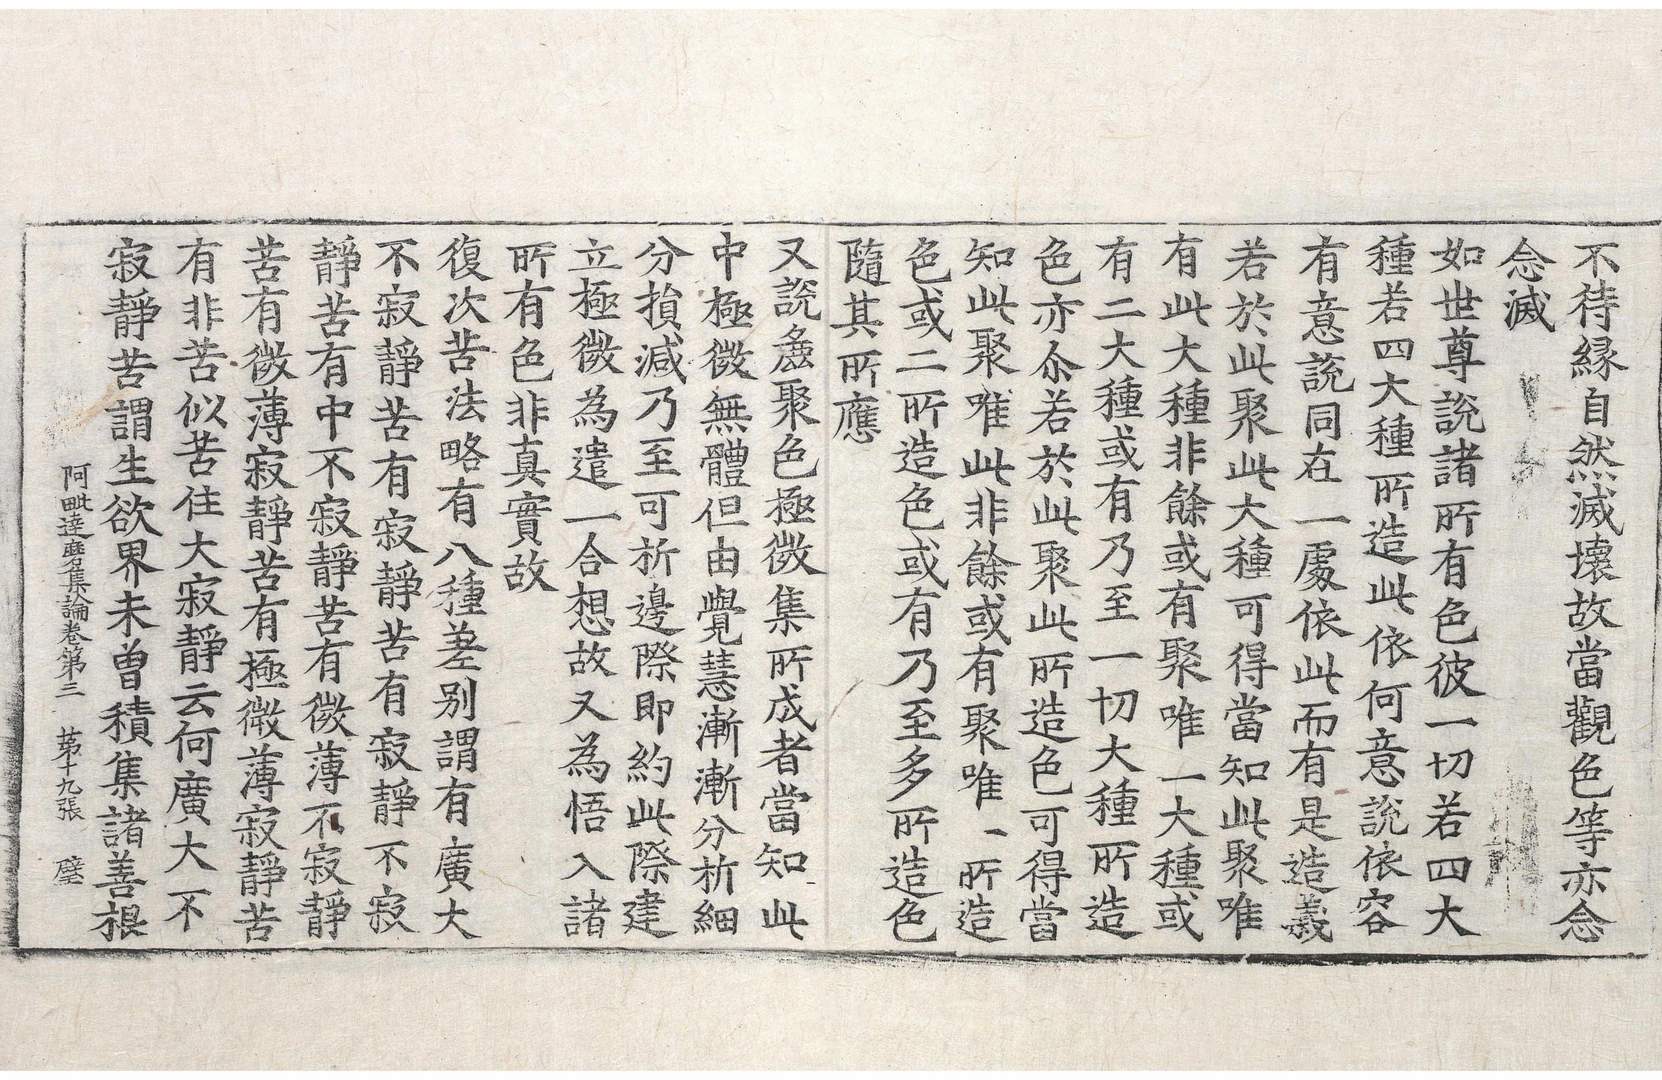 不待縁自然滅壞故當觀色等亦念
念滅
如世尊說諸所有色彼一切若四大
種若四大種所造此依何意說依容
有意說同在一處依此而有是造義
若於此聚此大種可得當知此聚唯
有此大種非餘或有聚唯一大種或
有二大種或有乃至一切大種所造
色亦尒若於此聚此所造色可得當
知此聚唯此非餘或有聚唯一所造
色或二所造色或有乃至多所造色
隨其所應
又說麁聚色極微集所成者當知此
中極微無體但由覺慧漸漸分析細
分損減乃至可析邊際即約此際建
立極微為遣一合想故又為悟入諸
所有色非真實故
復次苦法略有八種差別謂有廣大
不寂靜苦有寂靜苦有寂靜不寂
靜苦有中不寂靜苦有微薄不寂靜
苦有微薄寂靜苦有極微薄寂靜苦
有非苦似苦住大寂靜云何廣大不
寂靜苦謂生欲界未曾積集諸善根
阿毗達磨集論卷第三 第十九張 璧